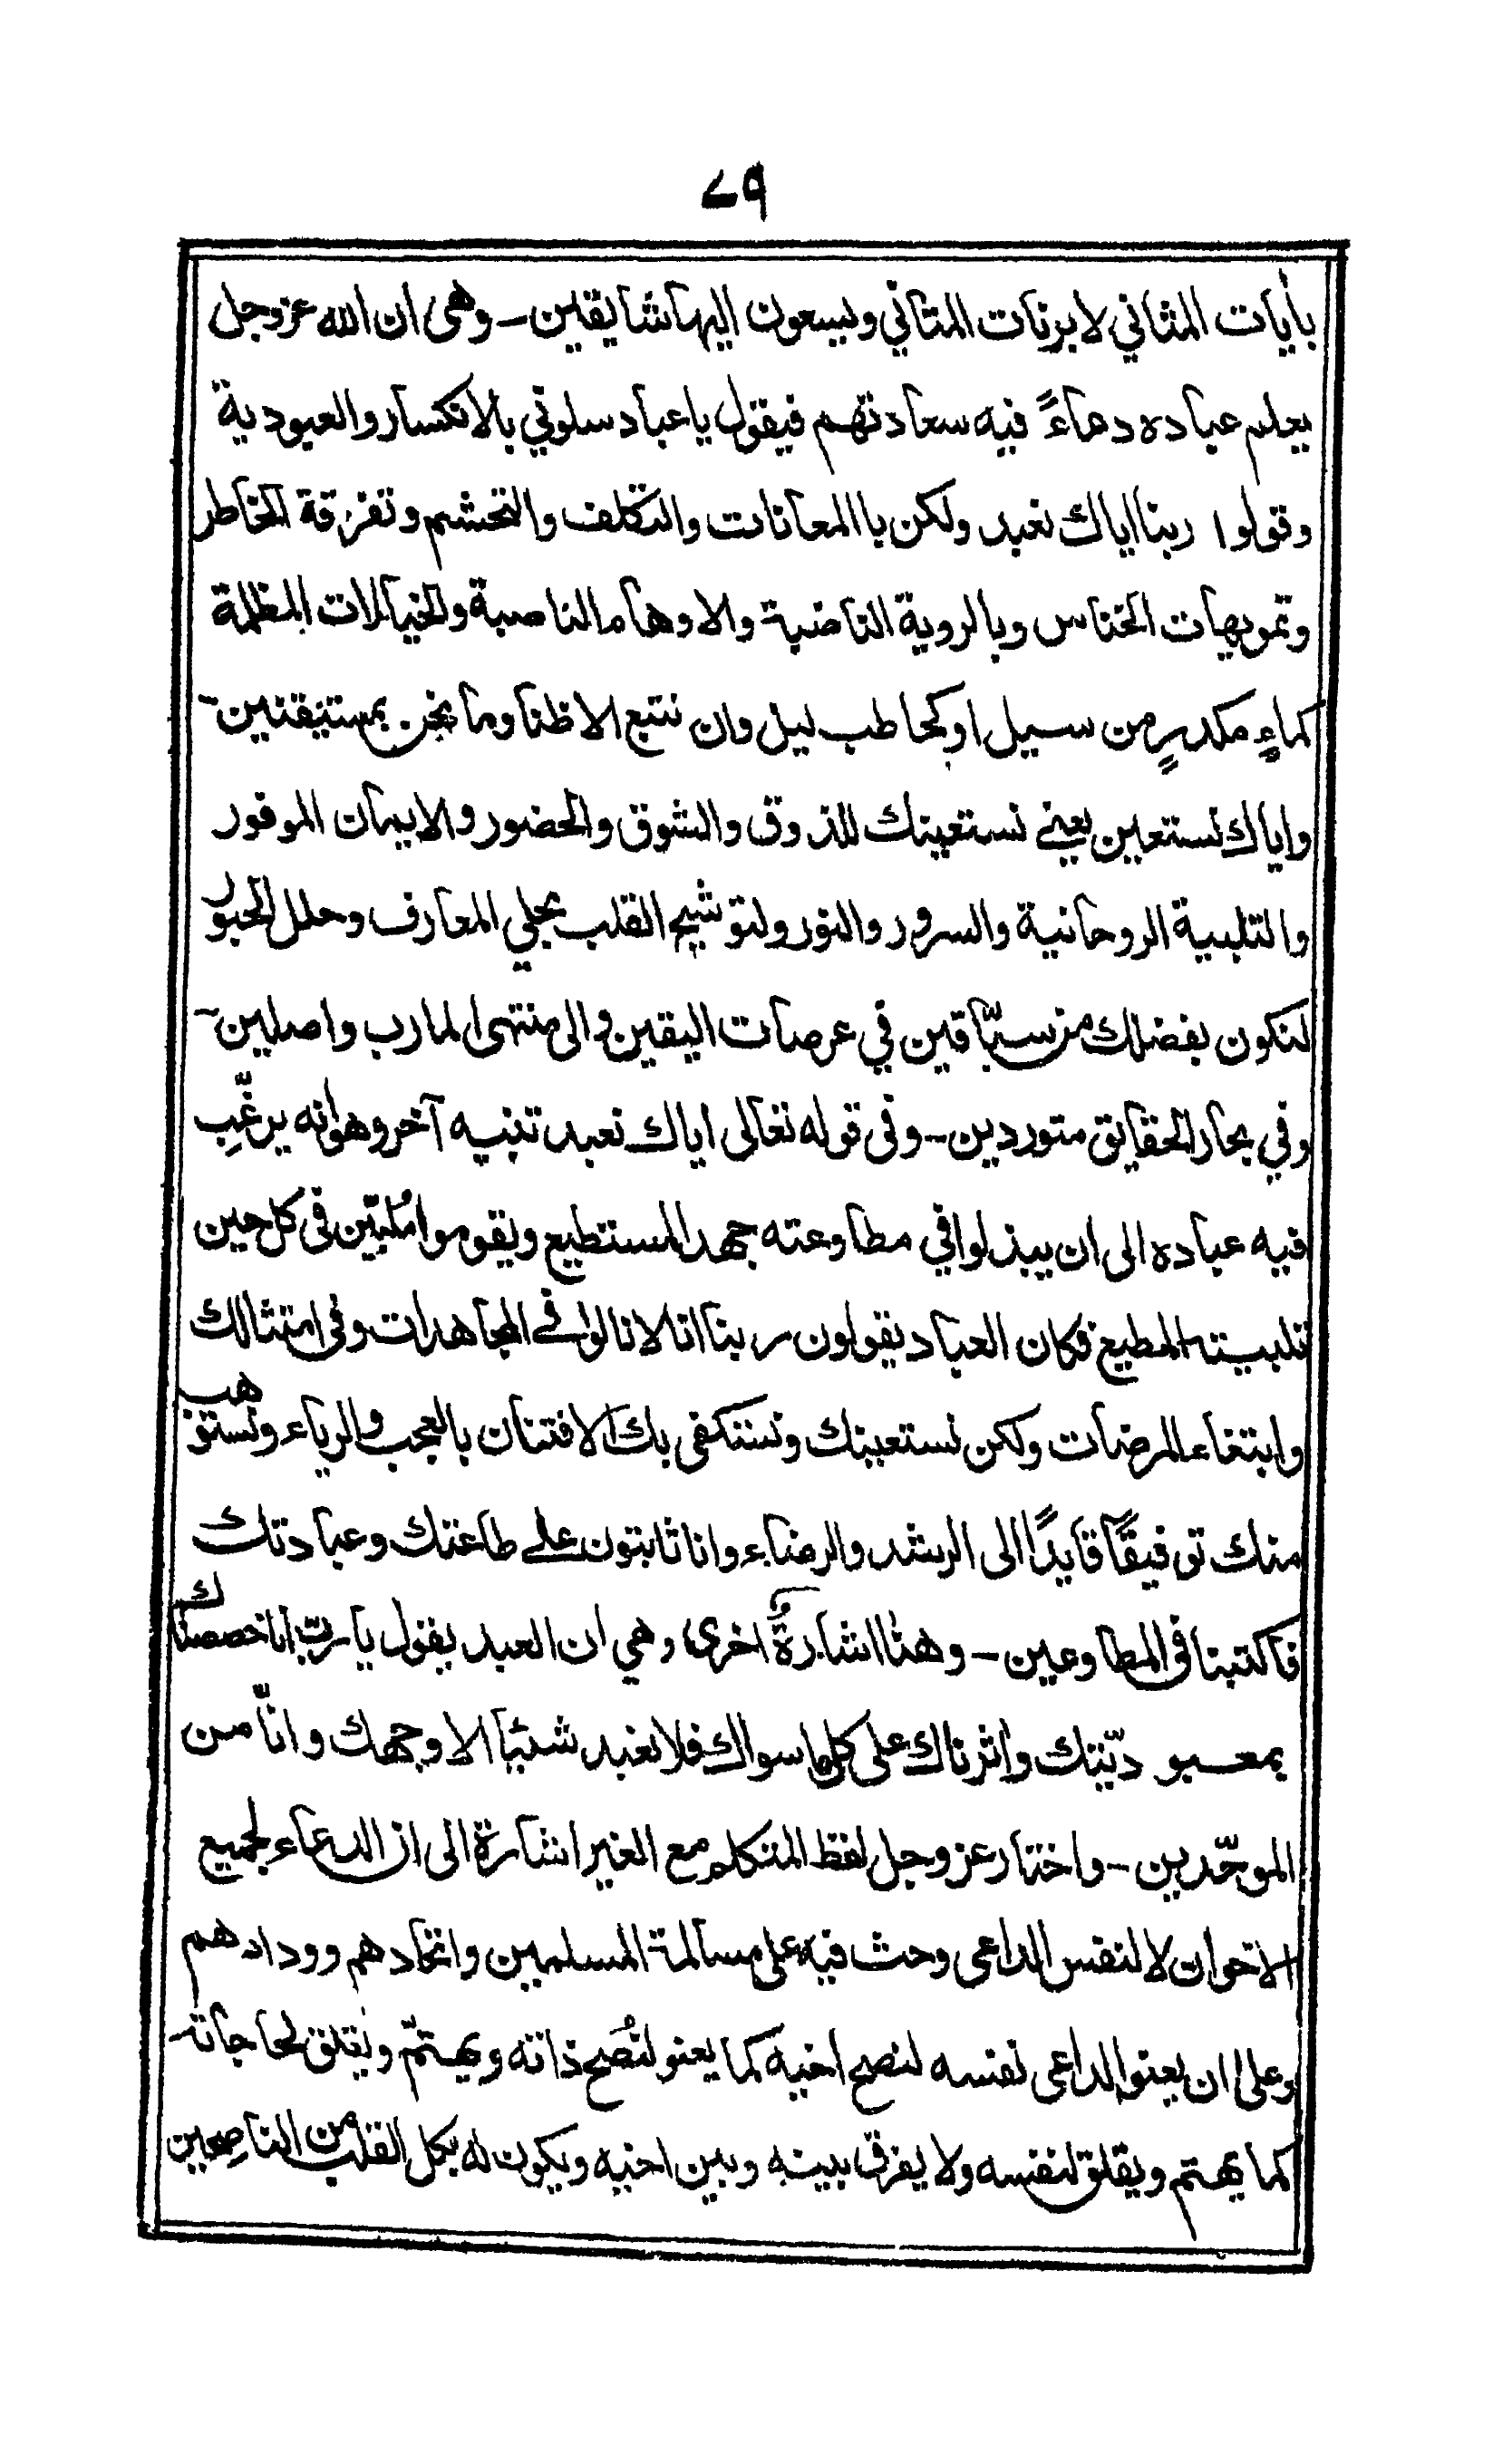 ٧٩
بأيات المثاني لا برنات المثاني ويسعون اليها شايقين - وهى ان الله عزوجل
يعلم عباده دعاءً فيه سعادتهم فيقول يا عباد سلوني بالانكسار والعبودية
وقولوا ربنا اياك نعبد ولكن با المعانات والتكلف والتحشم وتفرقة الخاطر
وتمويهات الخناس وبالروية الناضبة والاوهام الناصبة والخيالات المظلمة
كماءٍ مكدرٍ من سيل او كحاطب ليل وان نتبع الا ظنا وما نحن بمستيقنين-
واياك نستعين يعنے نستعينك للذوق والشوق والحضور والايمان الموفور
والتلبية الروحانية والسرور والنور ولتوشيح القلب بحلي المعارف وحلل الحبور
لنكون بفضلك من سبّاقين في عرصات اليقين والى منتهى المارب واصلين-
وفي بحار الحقايق متوردين - وفى قوله تعالى اياك نعبد تنبيه آخر وهو انه يرغّب
فيه عباده الى ان يبذلوا في مطاوعته جهد المستطيع ويقوموا مُلبّين فى كل حين
تلبية المطيع فكان العباد يقولون ربنا انا لا نالوا فے المجاهدات وفى امتثالك
وابتغاء المرضات ولكن نستعينك ونستكفى بك الافتنان بالعجب والرياء ونستوهب
منك توفيقًا قايدًا الى الرشد والرضاء وانا ثابتون علے طاعتك وعبادتك
فاكتبنا فى المطاوعين - وهنا اشارةٌ اخرى وهي ان العبد يقول يا ربّ انا خصصناك
بمعبوديّتك واثرناك على كل ما سواك فلا نعبد شيئًا الا وجهك وانّا من
الموحّدين - واختار عزوجل لفظ المتكلم مع الغير اشارة الى ان الدعاء لجميع
الاخوان لا لنفس الداعى وحث فيه على مسالمة المسلمين واتحادهم وودادهم
وعلى ان يعنوا الداعى نفسه لنصح اخيه كما يعنو لنُصح ذاته ويهتمّ ويقلق لحاجاته
كما يهتم ويقلق لنفسه ولا يفرق بينه وبين اخيه ويكون له بكل القلب من الناصحين